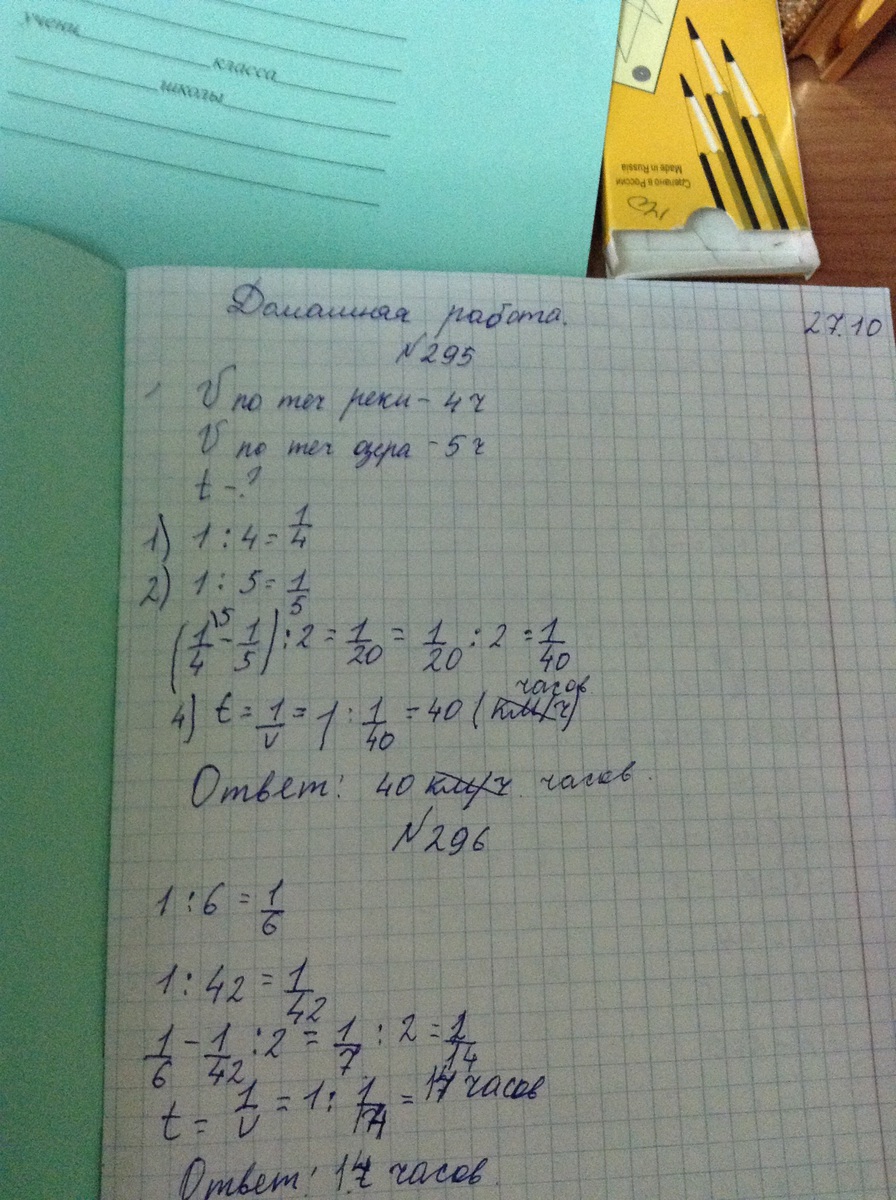 учени
класса
школы
Сделано в России
Made in Russia
Домашняя работа. 27.10
№295
V по теч реки - 4 ч
V по теч озера - 5 ч
t - ?
1) 1 : 4 = 1/4
2) 1 : 5 = 1/5
(1/4 \5 - 1/5) : 2 = 1/20 = 1/20 : 2 = 1/40
4) t = 1/v = 1 : 1/40 = 40 (км/ч) часов
Ответ: 40 км/ч. часов.
№296
1 : 6 = 1/6
1 : 42 = 1/42
1/6 - 1/42 : 2 = 1/7 : 2 = 1/14
t = 1/v = 1 : 1/14 = 14 часов
Ответ: 14 часов.